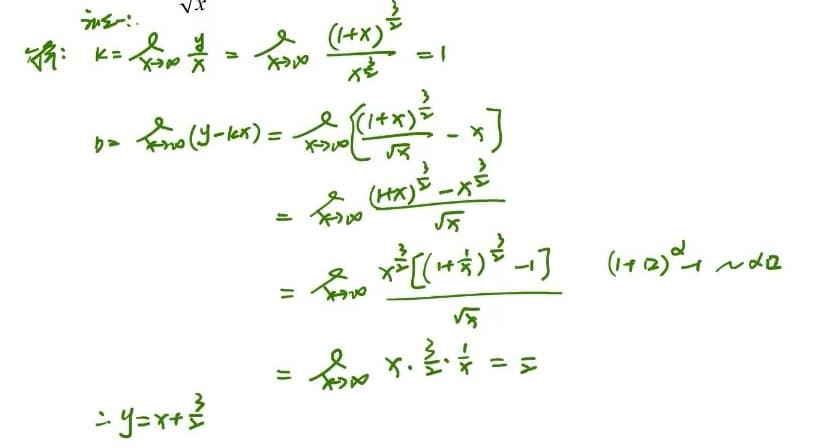 √x
解: k = lim_{x→∞} y/x = lim_{x→∞} (1+x)^{3/2} / x^{3/2} = 1
b = lim_{x→∞} (y-kx) = lim_{x→∞} [(1+x)^{3/2} / √x - x]
= lim_{x→∞} ((1+x)^{3/2} - x^{3/2}) / √x
= lim_{x→∞} x^{3/2}[(1+1/x)^{3/2} - 1] / √x (1+□)^α - 1 ~ α□
= lim_{x→∞} x · 3/2 · 1/x = 3/2
∴ y = x + 3/2